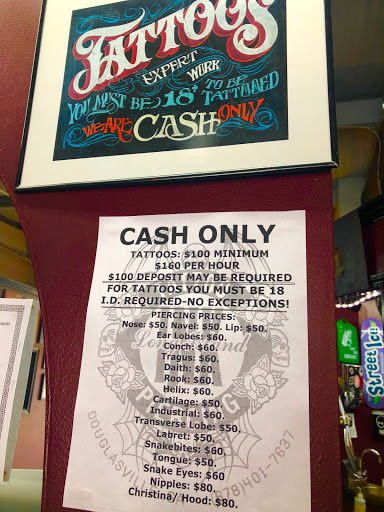 TATTOOS
EXPERT
WORK
YOU MUST BE 18+ TO BE TATTOOED
WE ARE CASH ONLY
CASH ONLY
TATTOOS: $100 MINIMUM
$160 PER HOUR
$100 DEPOSIT MAY BE REQUIRED
FOR TATTOOS YOU MUST BE 18
I.D. REQUIRED-NO EXCEPTIONS!
PIERCING PRICES:
Nose: $50. Navel: $50. Lip: $50.
Ear Lobes: $60.
Conch: $60.
Tragus: $60.
Daith: $60.
Rook: $60.
Helix: $60.
Cartilage: $50.
Industrial: $60.
Transverse Lobe: $50.
Labret: $50.
Snakebites: $60.
Tongue: $50.
Snake Eyes: $60
Nipples: $80.
Christina/ Hood: $80.
DOUGLASVILLE
(678)401-7637
Street Ice